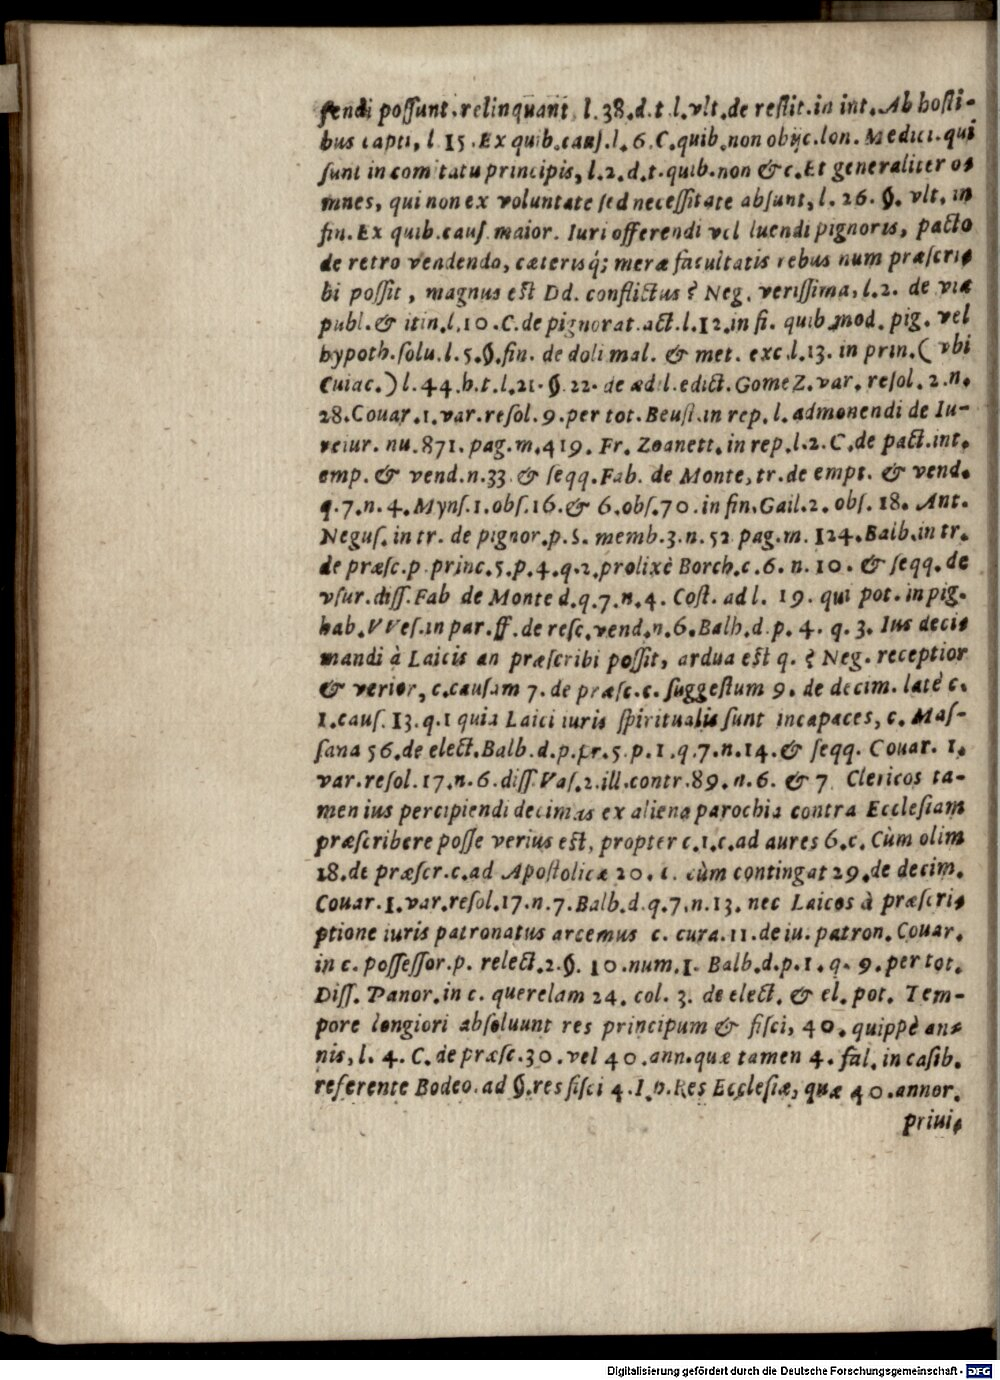 fendi possunt.relinquant, l.38.d.t.l.vlt.de restit.in int.Ab hosti-
bus capti, l 15.Ex quib.caus.l.6.C.quib.non obijc.lon.Medici.qui
sunt in comitatu principis, l.2.d.t.quib.non &c.Et generaliter o-
mnes, qui non ex voluntate sed necessitate absunt, l.26.§.vlt.in
fin.Ex quib.caus.maior. Iuri offerendi vel luendi pignoris, pacto
de retro vendendo, cæterisq́; meræ facultatis rebus num præscri-
bi possit, magnus est Dd. conflictus ? Neg. verissima, l.2. de via
publ.& itin.l.10.C.de pignorat.act.l.12.in fi. quib.mod.pig. vel
hypoth.solu.l.5.§.fin. de doli mal. & met. exc.l.13. in prin.( vbi
Cuiac.) l.44.h.t.l.21.§.22. de ædil.edict.GomeZ.var.resol.2.n.
28.Couar.1.var.resol.9.per tot.Beust.in rep.l.admonendi de Iu-
reiur. nu.871.pag.m.419. Fr. Zoanett.in rep.l.2.C.de pact.int.
emp. & vend.n.33 & seqq.Fab. de Monte, tr.de empt. & vend.
q.7.n.4.Myns.1.obs.16.& 6.obs.70.in fin.Gail.2. obs. 18. Ant.
Negus.in tr. de pignor.p.5. memb.3.n.52 pag.m. 124.Balb.in tr.
de præsc.p princ.5.p.4.q.2.prolixè Borch.c.6.n.10. & seqq.de
vsur.diss.Fab de Monte d.q.7.n.4. Cost. ad l. 19. qui pot.in pig.
hab.VVes.in par.ff.de resc.vend.n.6.Balb.d.p.4. q.3. Ius deci-
mandi à Laicis an præscribi possit, ardua est q. ? Neg. receptior
& verior, c.causam 7. de præsc.c. suggestum 9. de decim. latè c.
1.caus.13.q.1 quia Laici iuris spiritualis sunt incapaces, c. Mas-
sana 56.de elect.Balb.d.p.pr.5.p.1.q.7.n.14.& seqq. Couar. 1.
var.resol.17.n.6.diss.Vas.2.ill.contr.89.n.6. & 7 Clericos ta-
men ius percipiendi decimas ex aliena parochia contra Ecclesiam
præscribere posse verius est, propter c.1.c.ad aures 6.c. Cùm olim
18.de præscr.c.ad Apostolicæ 20.c. cùm contingat 29.de decim.
Couar.1.var.resol.17.n.7.Balb.d.q.7.n.13. nec Laicos à præscri-
ptione iuris patronatus arcemus c. cura.11.de iu. patron. Couar.
in c. possessor.p. relect.2.§. 10.num.1. Balb.d.p.1.q. 9.per tot.
Diss. Panor.in c. querelam 24. col. 3. de elect. & el. pot. Tem-
pore longiori absoluunt res principum & fisci, 40. quippè an-
nis, l. 4. C.de præsc.30.vel 40.ann.quæ tamen 4. fal. in casib.
referente Bodeo.ad §.res fisci 4.I.h.Res Ecclesiæ, quæ 40.annor.
priui-
Digitalisierung gefördert durch die Deutsche Forschungsgemeinschaft - DFG